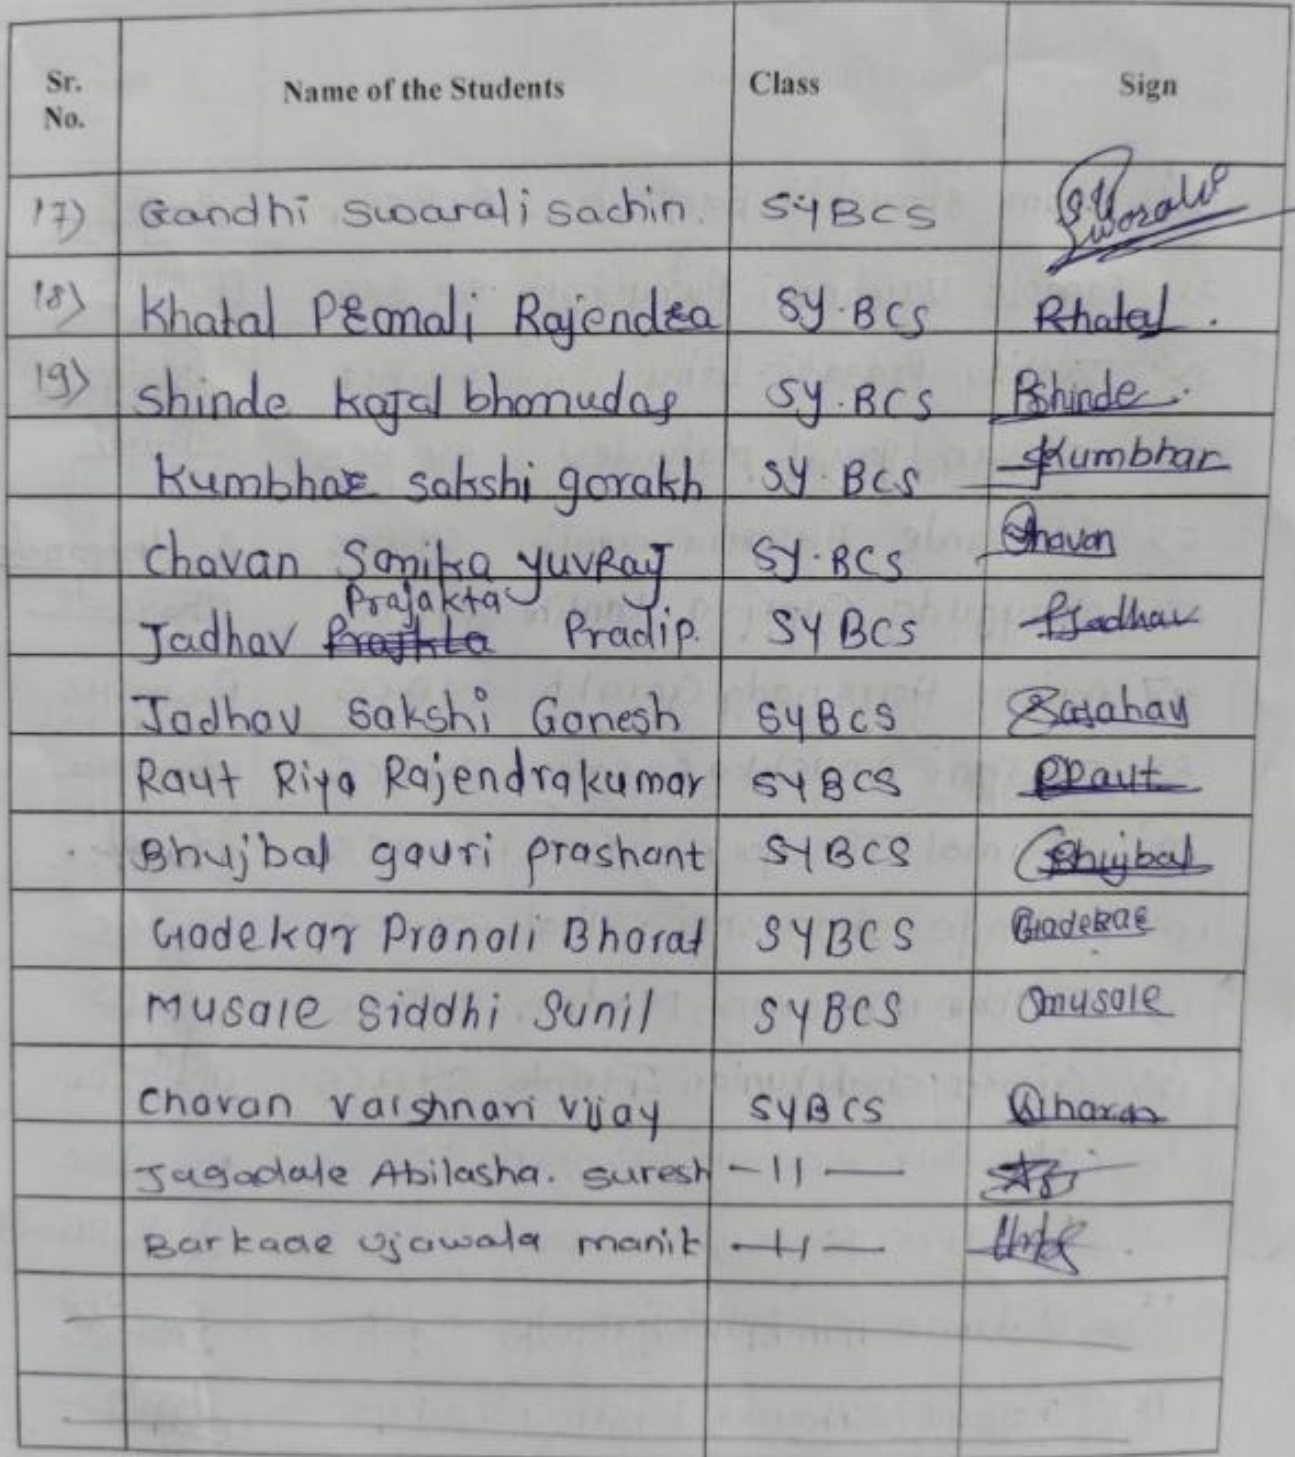 Sr. No. Name of the Students Class Sign
17) Gandhi Swarali Sachin. SYBCS Swarali
18) Khatal Premali Rajendra SY.BCS Khatal.
19) Shinde Kajal bhanudas SY.BCS Shinde.
Kumbhar sakshi gorakh SY.BCS Kumbhar
Chavan Sanika Yuvraj SY.BCS Chavan
Prajakta
Jadhav Pradip. SYBCS PJadhav
Jadhav Sakshi Ganesh SYBCS
Raut Riya Rajendrakumar SYBCS RRaut
Bhujbal gauri prashant SYBCS Bhujbal
Gadekar Pranali Bharat SYBCS Gadekar
Musale Siddhi Sunil SYBCS Smusale
Chavan Vaishnavi Vijay SYBCS
Jagadale Abilasha. Suresh -11-
Barkade Ujawala manik -11-